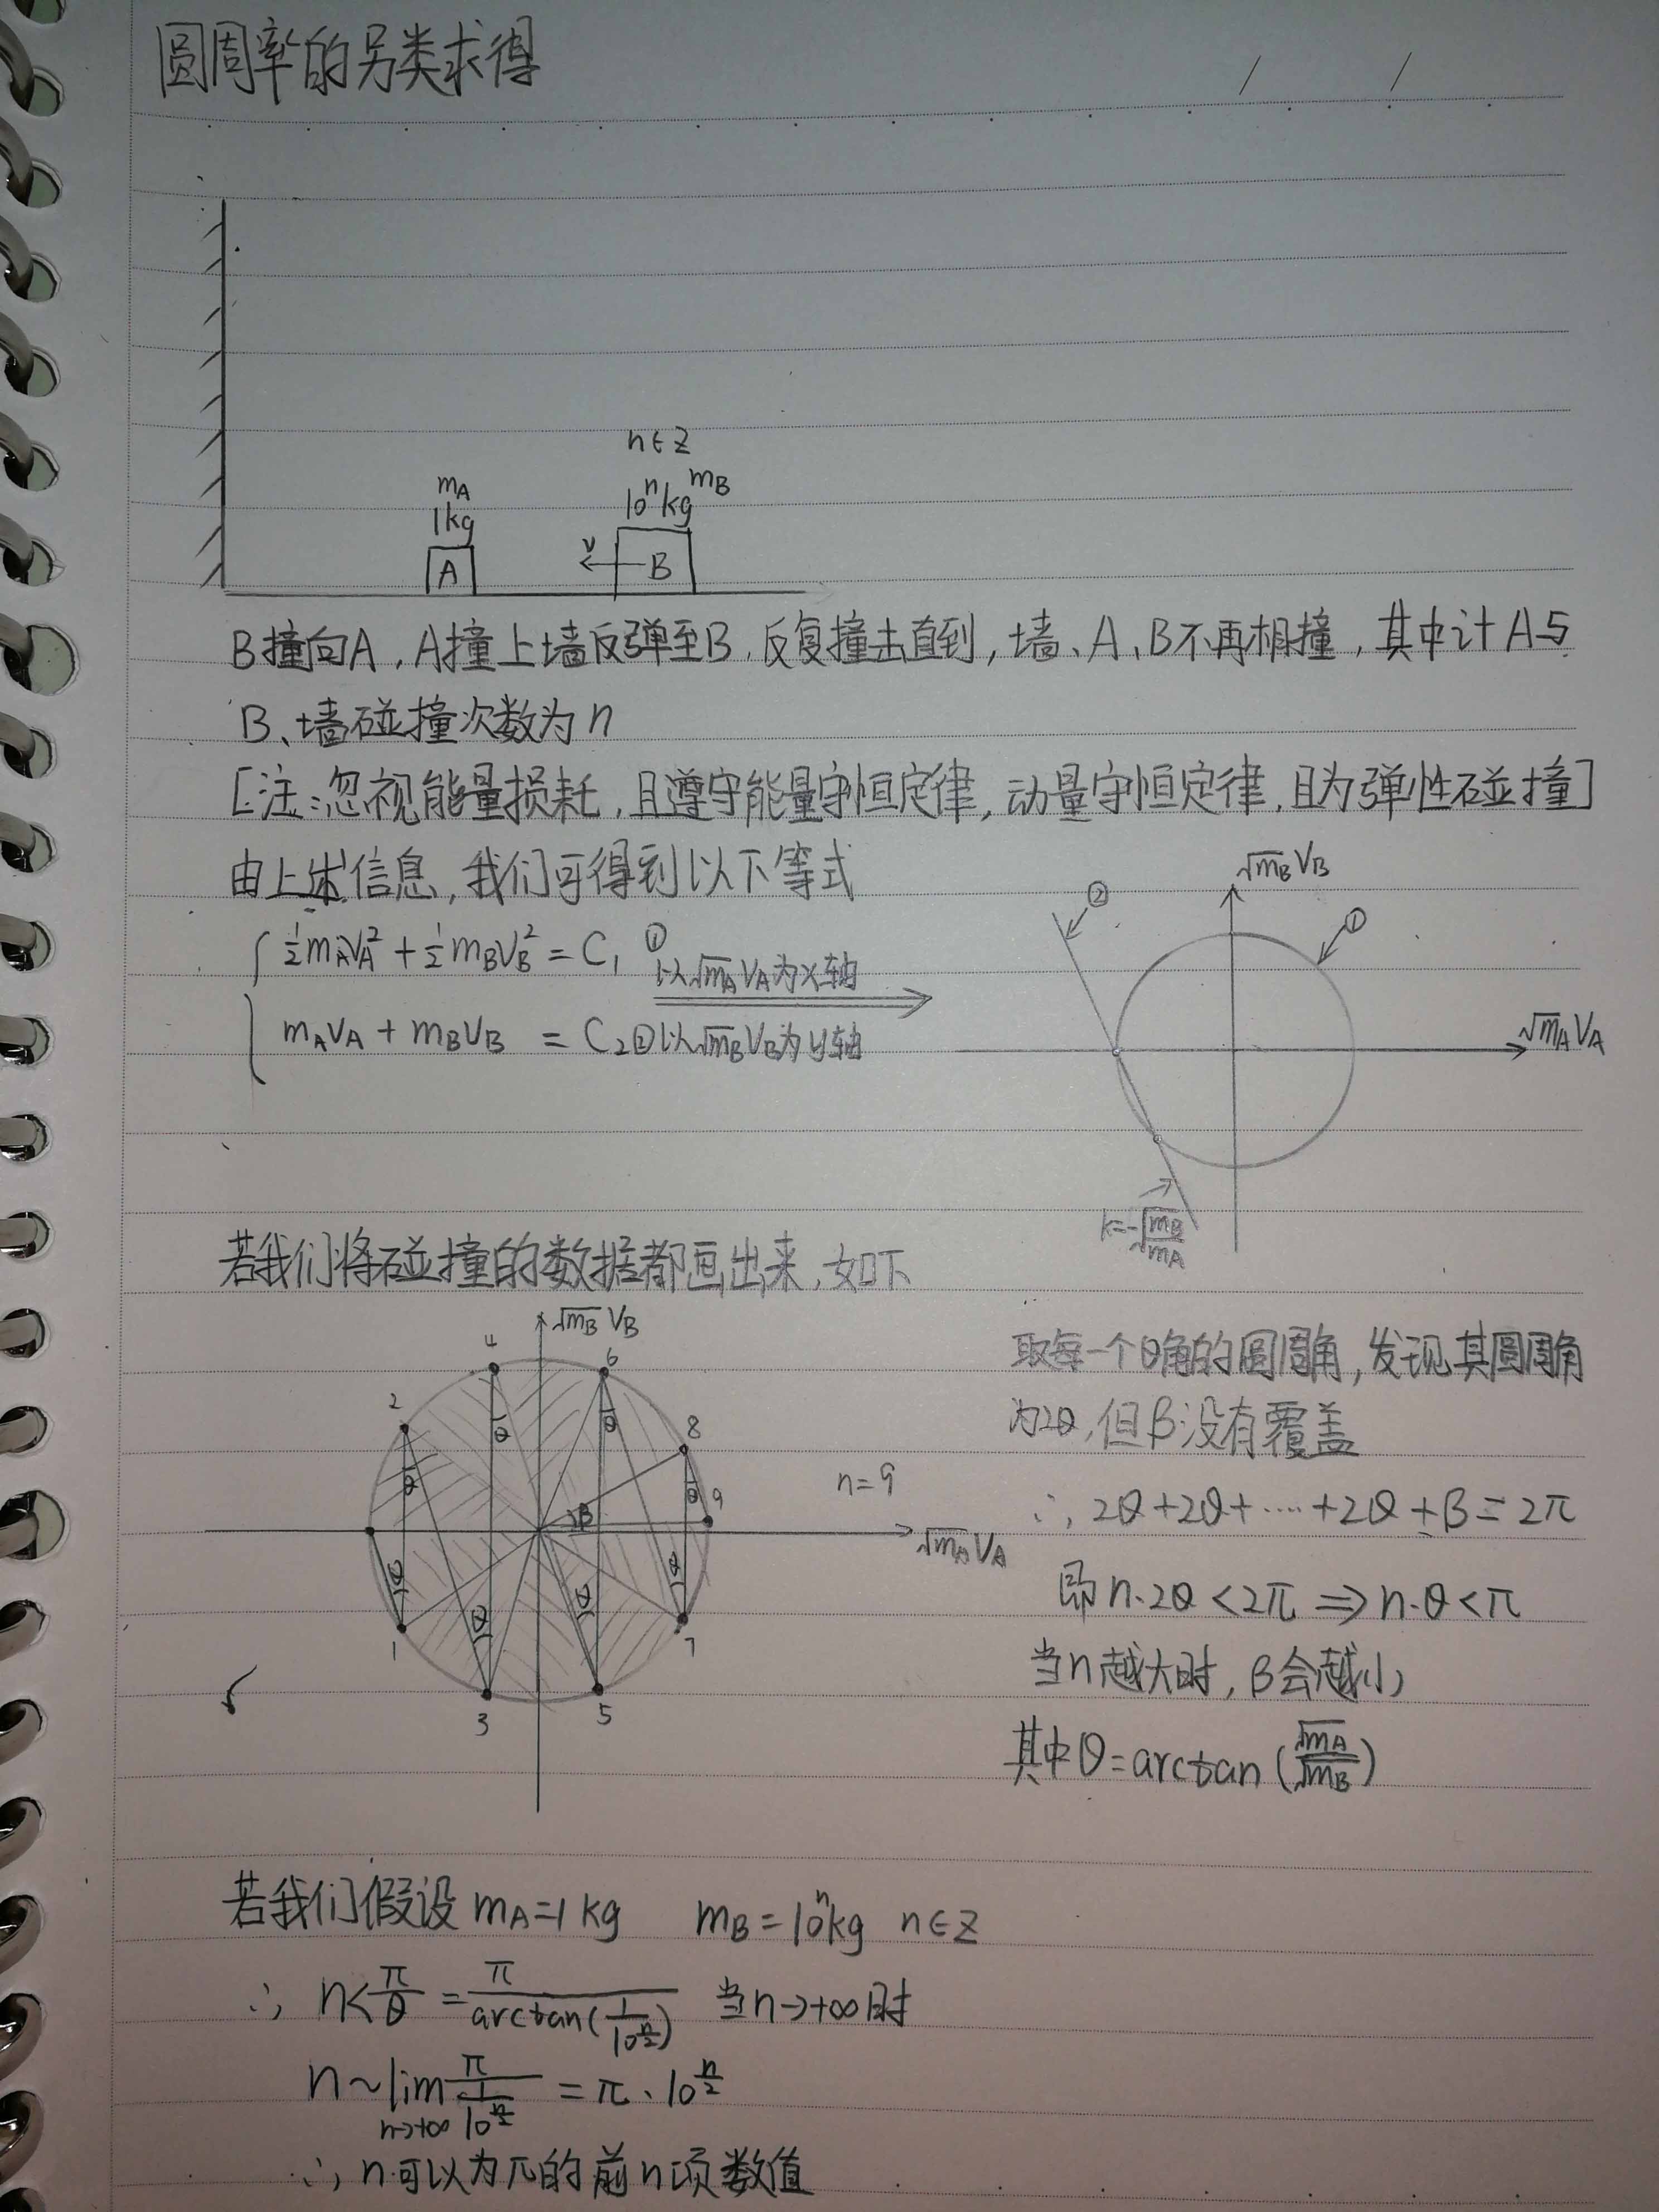 圆周率的另类求得
n∈Z
m_A
1kg
10^n kg m_B
A
v
B
B撞向A,A撞上墙反弹至B,反复撞击直到,墙、A、B不再相撞,其中计A与
B、墙碰撞次数为n
[注:忽视能量损耗,且遵守能量守恒定律,动量守恒定律,且为弹性碰撞]
由上述信息,我们可得到以下等式
½m_A V_A² + ½m_B V_B² = C₁ ① 以√m_A V_A为x轴
m_A V_A + m_B V_B = C₂ ② 以√m_B V_B为y轴
√m_B V_B
②
①
√m_A V_A
k=-√(m_B/m_A)
若我们将碰撞的数据都画出来,如下
√m_B V_B
4
6
2
θ
θ
8
θ
θ
9
β
n=9
√m_A V_A
θ
θ
θ
θ
1
7
3
5
取每一个θ角的圆周角,发现其圆周角
为2θ,但β没有覆盖
∴ 2θ+2θ+····+2θ+β=2π
即n·2θ<2π ⇒ n·θ<π
当n越大时,β会越小
其中θ=arctan(√m_A/√m_B)
若我们假设 m_A=1kg m_B=10^n kg n∈Z
∴ n<π/θ=π/arctan(1/10^(n/2)) 当n→+∞时
n~lim_(n→+∞) π/(1/10^(n/2)) = π·10^(n/2)
∴ n可以为π的前n项数值